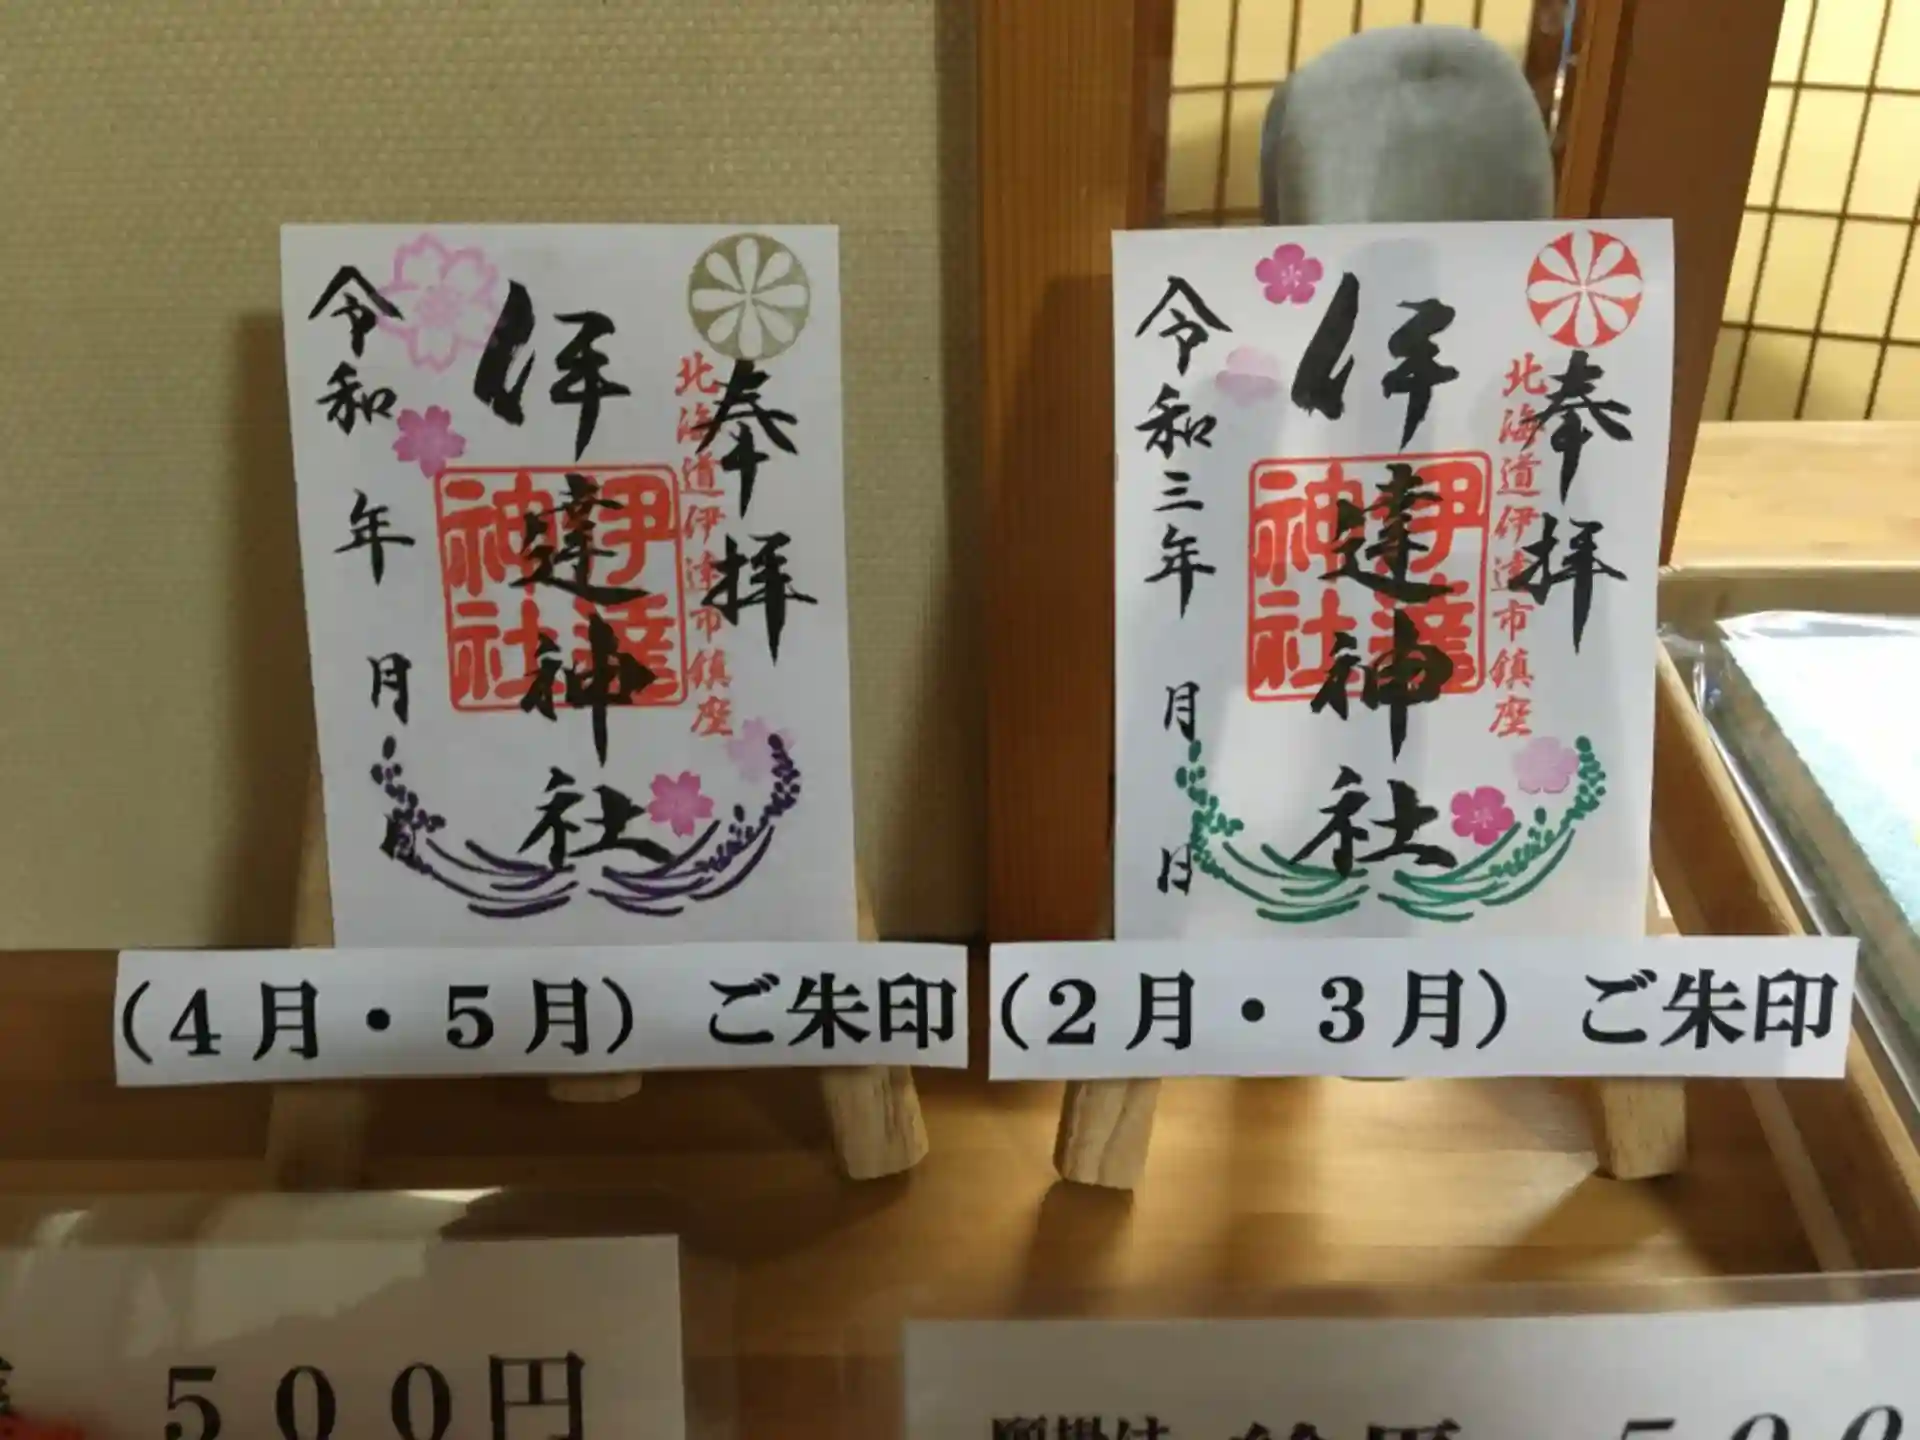 奉拝
北海道伊達市鎮座
伊達神社
伊達
神社
令和 年 月 日
(4月・5月) ご朱印
奉拝
北海道伊達市鎮座
伊達神社
伊達
神社
令和三年 月 日
(2月・3月) ご朱印
500円
500